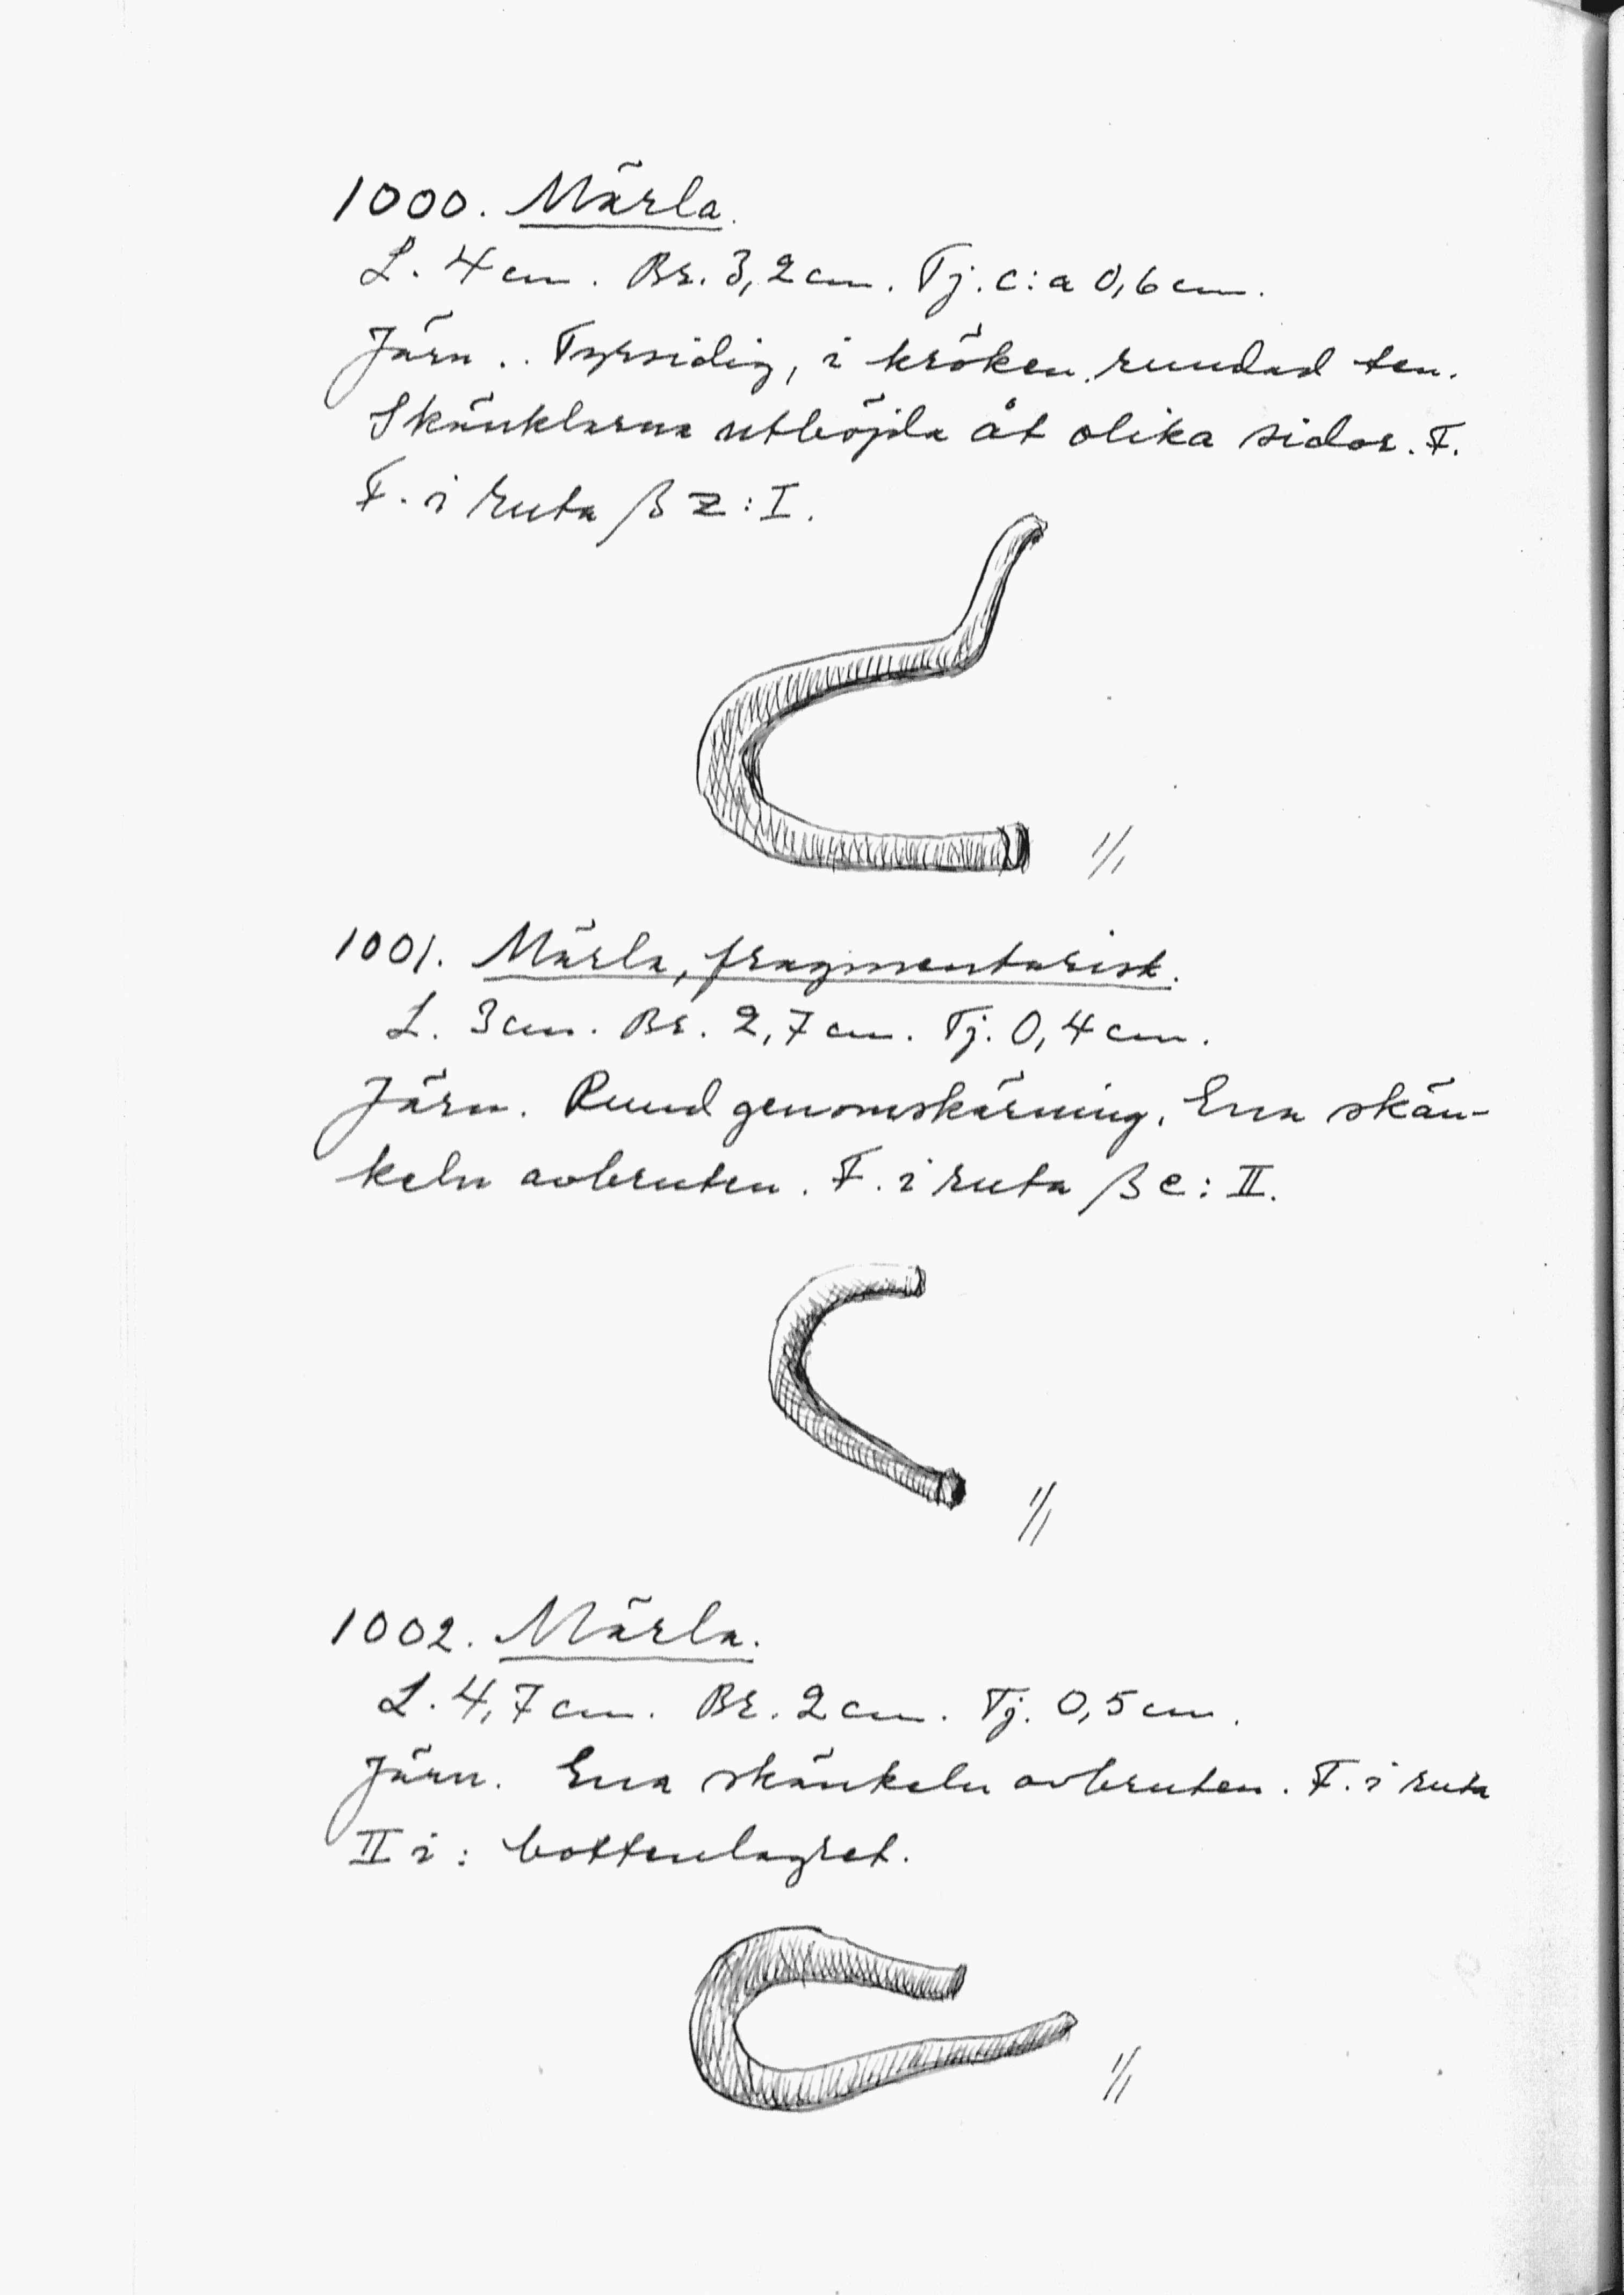 1000. Märla.
L. 4 cm. Br. 3,2 cm. Tj. c:a 0,6 cm.
Järn.. Fyrsidig, i kröken rundad ten.
Skänklarna utböjda åt olika sidor. F.
F. i ruta β z : I.
1/1
1001. Märla, fragmentarisk.
L. 3 cm. Br. 2,7 cm. Tj. 0,4 cm.
Järn. Rund genomskärning. Ena skän-
keln avbruten. F. i ruta β e : II.
1/1
1002. Märla.
L. 4,7 cm. Br. 2 cm. Tj. 0,5 cm.
Järn. Ena skänkeln avbruten. F. i ruta
II i : bottenlagret.
1/1